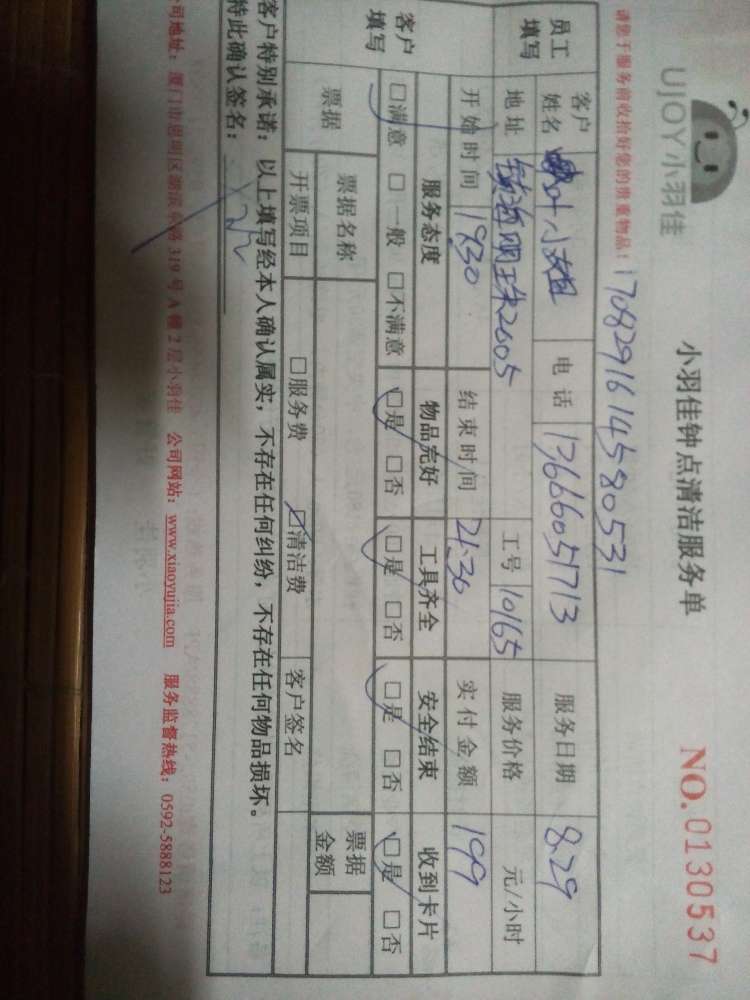 UJOY小羽佳
小羽佳钟点清洁服务单
NO. 0130537
请您于服务前收拾好您的贵重物品!
1708291614580531
员工填写 客户姓名 叶小姐 电话 13666051713 服务日期 8.29
地址 明珠2605 工号 10165 服务价格 元/小时
开始时间 19:30 结束时间 21:30 实付金额 199
客户填写 服务态度 物品完好 工具齐全 安全结束 收到卡片
□满意 □一般 □不满意 □是 □否 □是 □否 □是 □否 □是 □否
票据 票据名称 票据金额
开票项目 □服务费 □清洁费 客户签名
客户特别承诺:以上填写经本人确认属实,不存在任何纠纷,不存在任何物品损坏。
特此确认签名:
司地址:厦门市思明区湖滨东路319号A幢2层小羽佳 公司网站:www.xiaoyujia.com 服务监督热线:0592-5888123